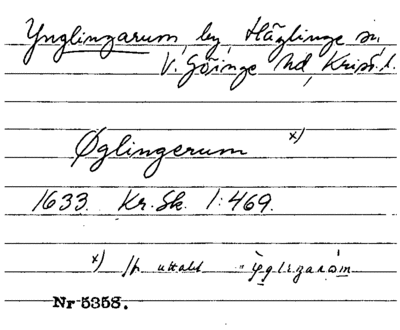 Ynglingarum, by, Häglinge sn,
V. Göinge hd, Krist. l.
Øglingerum x)
1633. Kr. Sk. 1:469.
x) uttald
Nr 5358.